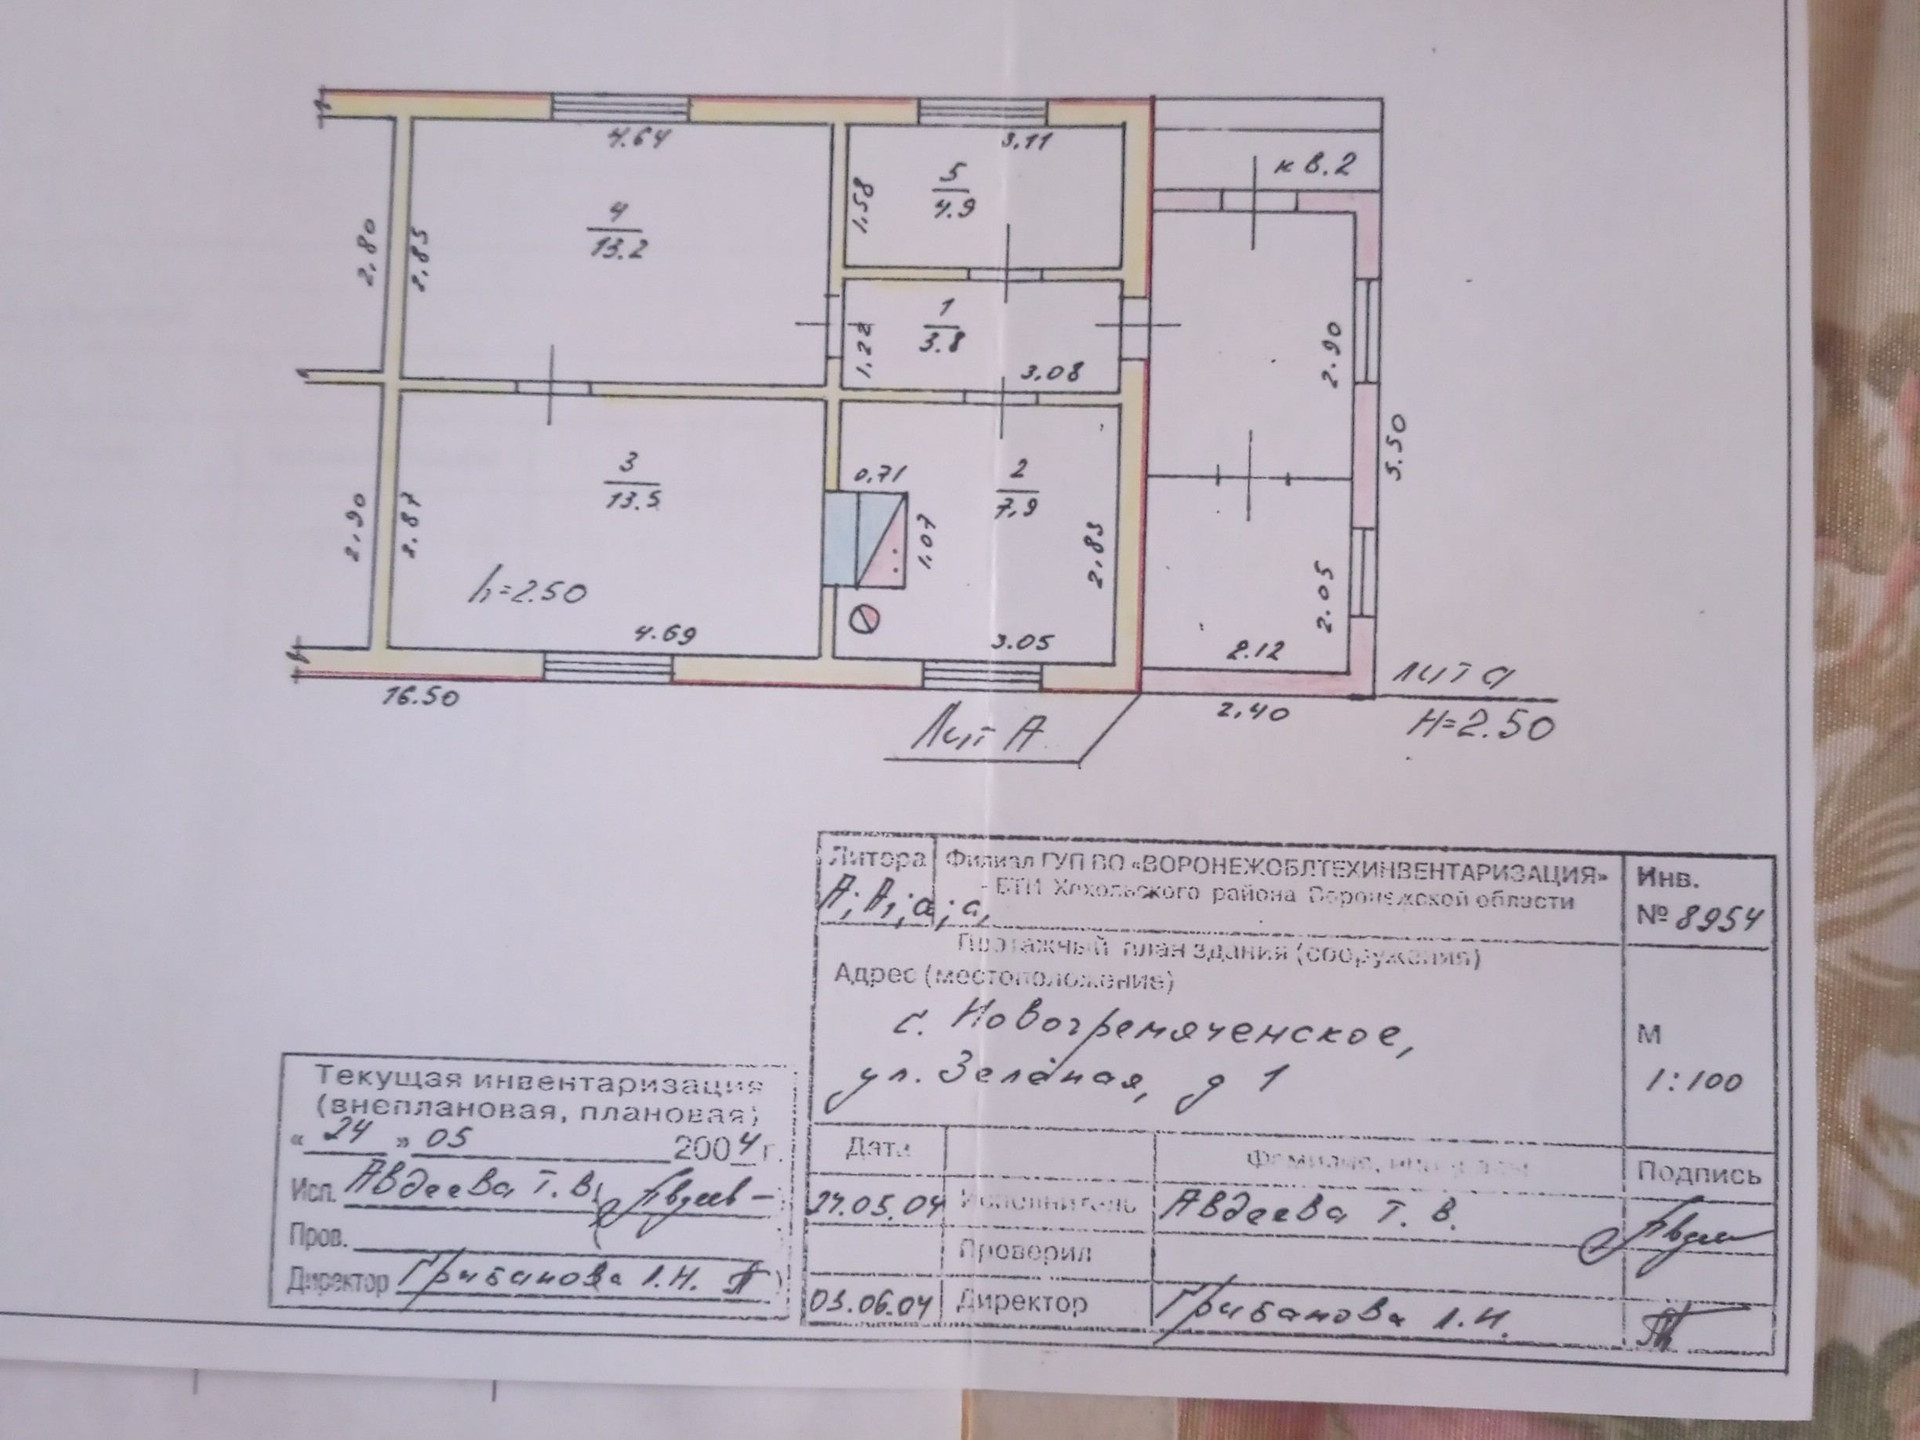 4.64
3.11
кв.2
5
4.9
1.58
4
13.2
2.80
2.85
1
3.8
1.22
3.08
2.90
5.50
3
13.5
0,71
2
7,9
1,07
2.83
2.90
2.87
h=2.50
4.69
3.05
2.05
2.12
16.50
2,40
Лит А
лит а
H=2.50
Литора
А; А₁; а; а₁
Филиал ГУП ВО «ВОРОНЕЖОБЛТЕХИНВЕНТАРИЗАЦИЯ»
- БТИ Хохольского района Воронежской области
Инв.
№ 8954
Поэтажный план здания (сооружения)
Адрес (местоположение)
с. Новогремяченское,
ул. Зелёная, д 1
М
1:100
Дата
Фамилия, инициалы
Подпись
24.05.04 Исполнитель Авдеева Т. В.
Проверил
03.06.04 Директор Грибанова Л.Н.
Текущая инвентаризация
(внеплановая, плановая)
« 24 » 05 2004 г.
Исп. Авдеева Т.В.
Пров.
Директор Грибанова Л.Н.